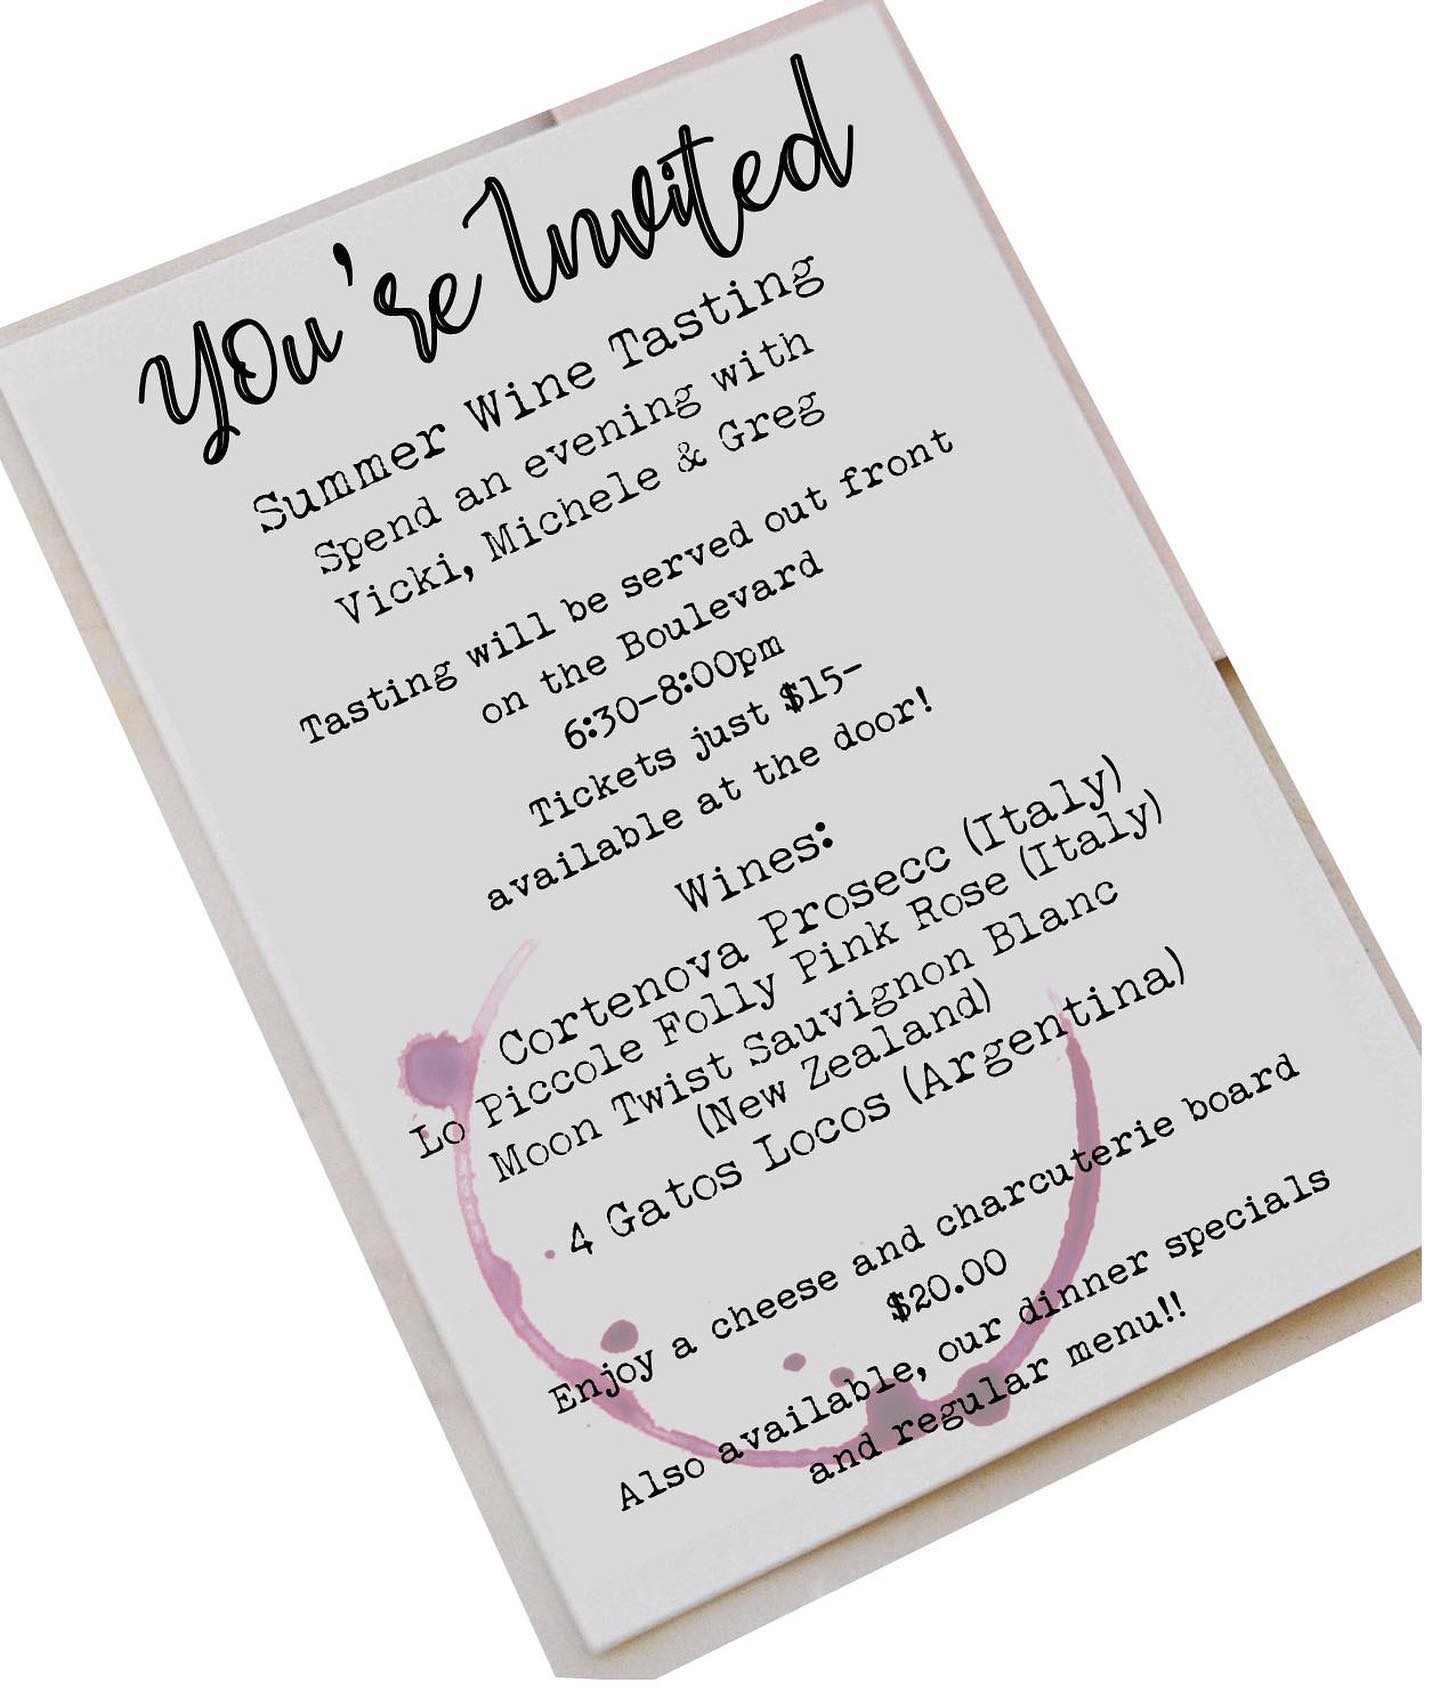 You're Invited
Summer Wine Tasting
Spend an evening with
Vicki, Michele & Greg
Tasting will be served out front
on the Boulevard
6:30-8:00pm
Tickets just $15-
available at the door!
Wines:
Cortenova Prosecc (Italy)
Lo Piccole Folly Pink Rose (Italy)
Moon Twist Sauvignon Blanc
(New Zealand)
4 Gatos Locos (Argentina)
Enjoy a cheese and charcuterie board
$20.00
Also available, our dinner specials
and regular menu!!